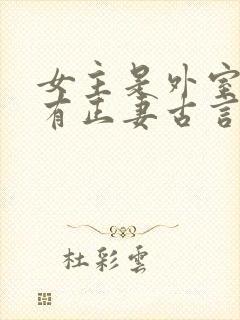 女主是外室
有正妻古言
杜彩雲